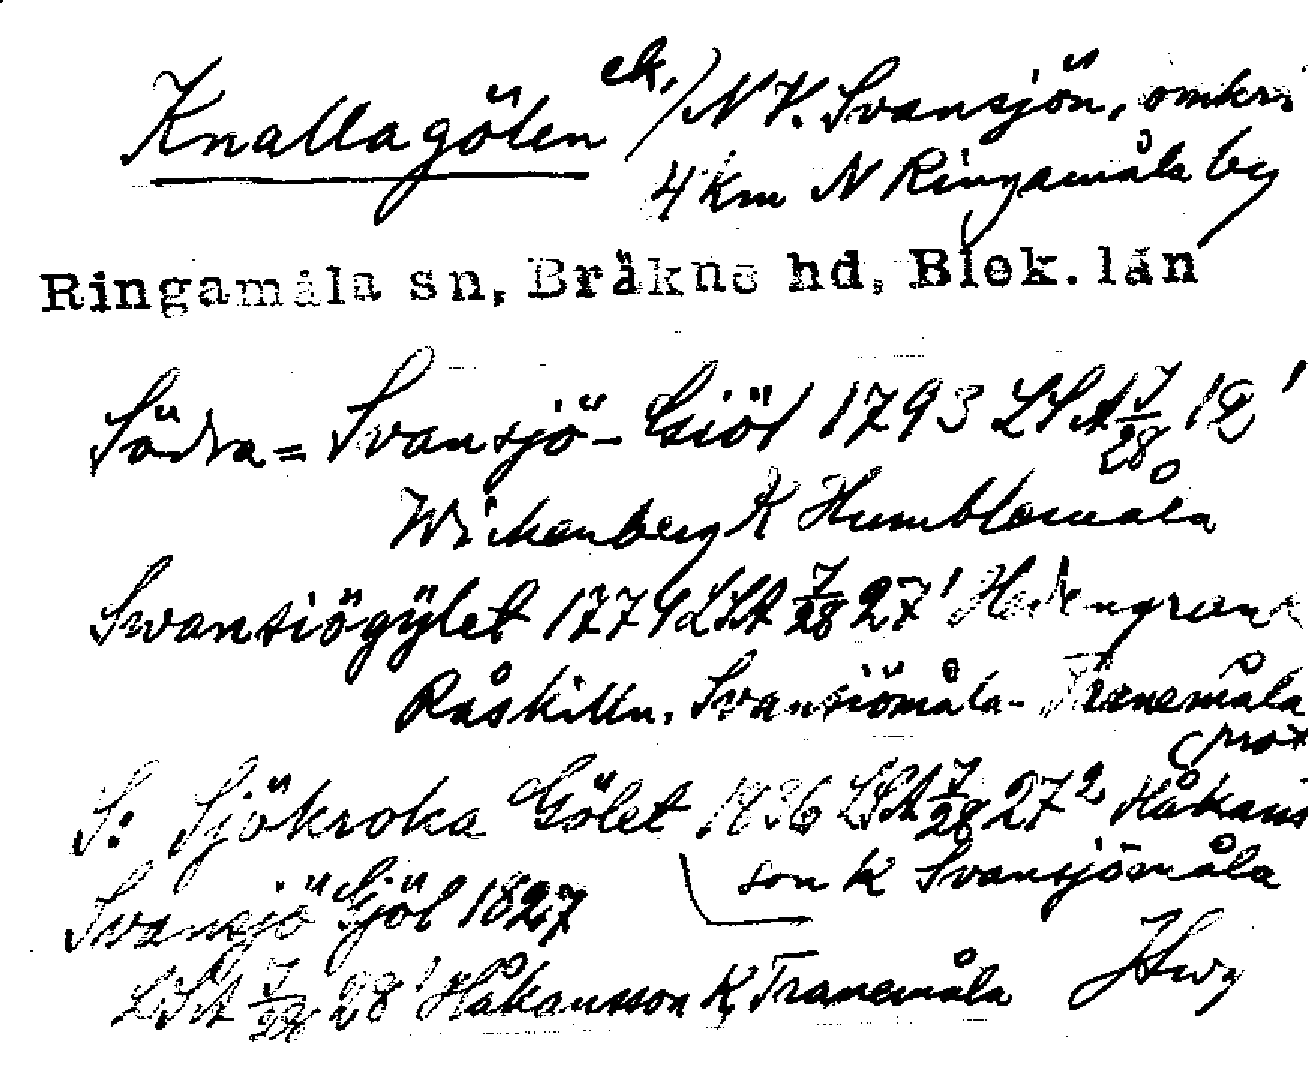 Knallagölen ek. / NV. Svansjön, omkr.
4 km N Ringamåla by
Ringamåla sn, Bräkne hd, Blek. län
Södra = Svansjö-Giöl 1793 LSA 7/28 12¹
Wickenberg K Humblemåla
Swansiögylet 1774 LSA 7/28 27¹
Råskilln. Svansiömåla - Tranemåla
prot
S: Sjökroka Gölet 1836 LSA 7/28 27² Håkans
son K Svansjömåla
Svansjö Gjöl 1827
LSA 7/28 28¹ Håkansson K, Tranemåla